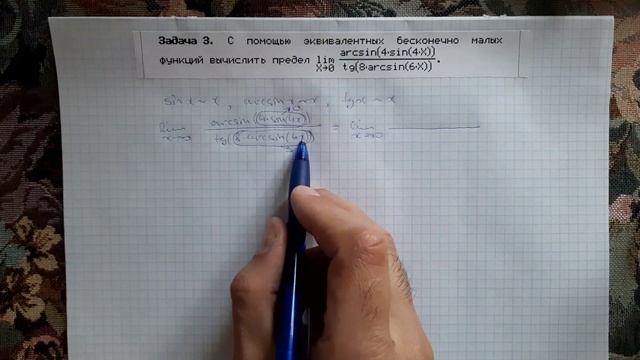 Задача 3. С помощью эквивалентных бесконечно малых
функций вычислить предел lim x→0 arcsin(4·sin(4·X)) / tg(8·arcsin(6·X)).
sin x ~ x, arcsin x ~ x, tg x ~ x
lim x→0 arcsin(4·sin(4x)) / tg(8·arcsin(6x)) = lim x→0